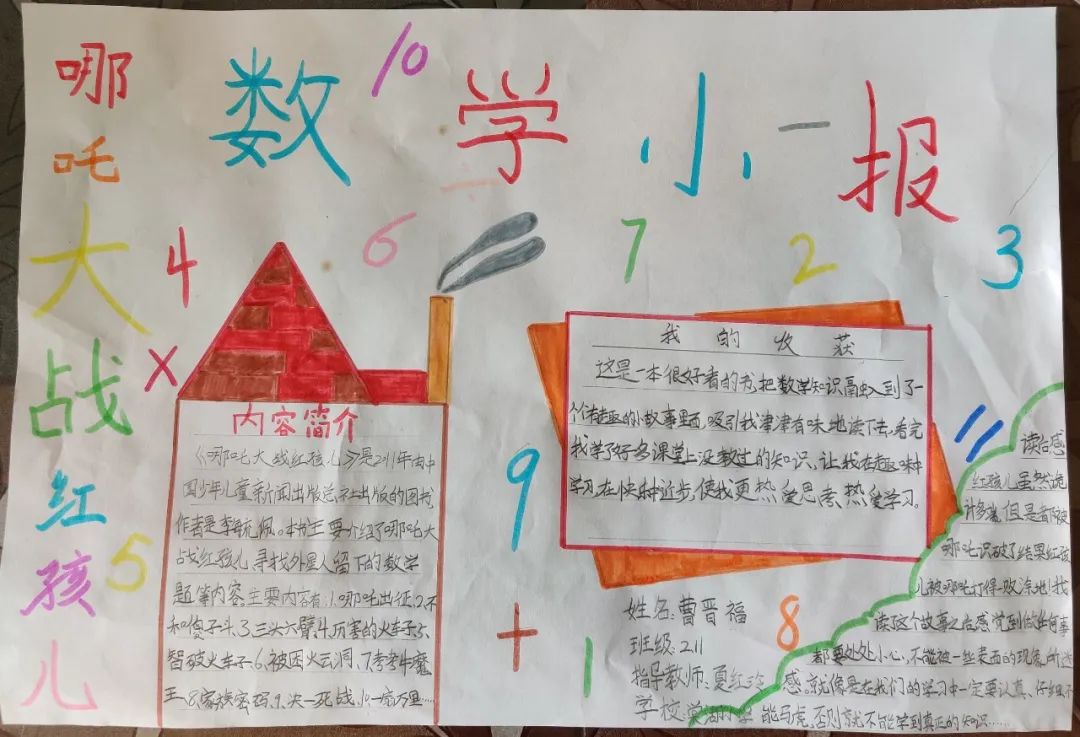 哪吒大战红孩儿
数学小报
10
4
6
7
2
3
×
5
9
+
1
8
11
内容简介
《哪吒大战红孩儿》是2011年由中
国少年儿童新闻出版总社出版的图书
作者是李毓佩。本书主要介绍了哪吒大
战红孩儿寻找外星人留下的数学
题等内容,主要内容有:1.哪吒出征,2.不
和傻子斗,3.三头六臂,4.厉害的火车子,5.
智破火车子,6.被困火云洞,7.智斗牛魔
王,8.家族密码,9.决一死战,10.一扇万里……
我的收获
这是一本很好看的书,把数学知识融入到了一
个个有趣的小故事里面,吸引我津津有味地读下去,看完
我学了好多课堂上没教过的知识,让我在趣味中
学习,在快乐中进步,使我更热爱思考、热爱学习。
姓名:曹晋福
班级:211
指导教师:夏红
学校:小学
读后感
红孩儿虽然诡
计多端,但是都被
哪吒识破了结果红孩
儿被哪吒打得一败涂地,我
读这个故事之后感觉到做任何事
都要处处小心,不能被一些表面的现象所迷
惑。就像是在我们的学习中一定要认真、仔细不
能马虎,否则就不能学到真正的知识……